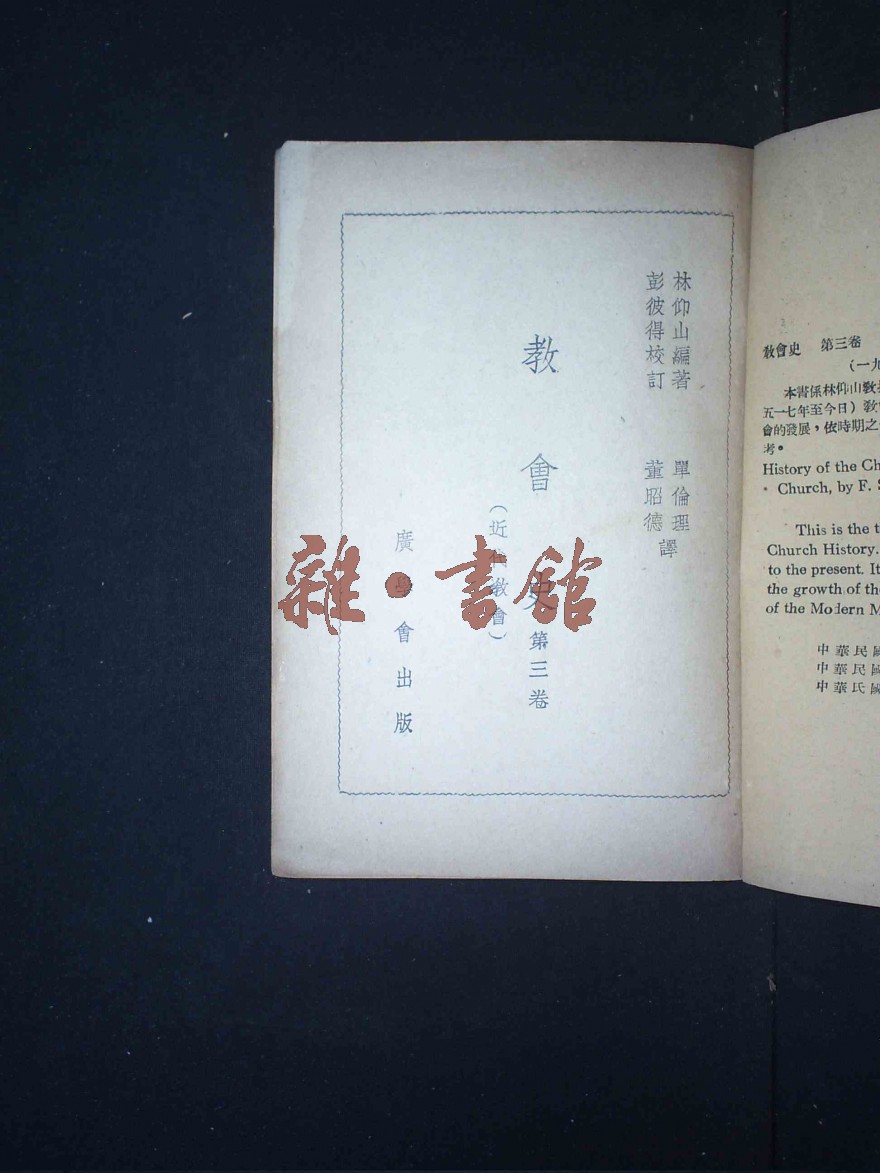 林仰山編著 單倫理
彭彼得校訂 董昭德 譯
教會史第三卷
(近世教會)
廣學會出版
雜·書館
教會史 第三卷
(一九
本書係林仰山教
五一七年至今日)教
會的發展,依時期之
考。
History of the Ch
Church, by F. S
This is the t
Church History.
to the present. It
the growth of the
of the Modern M
中華民國
中華民國
中華民國